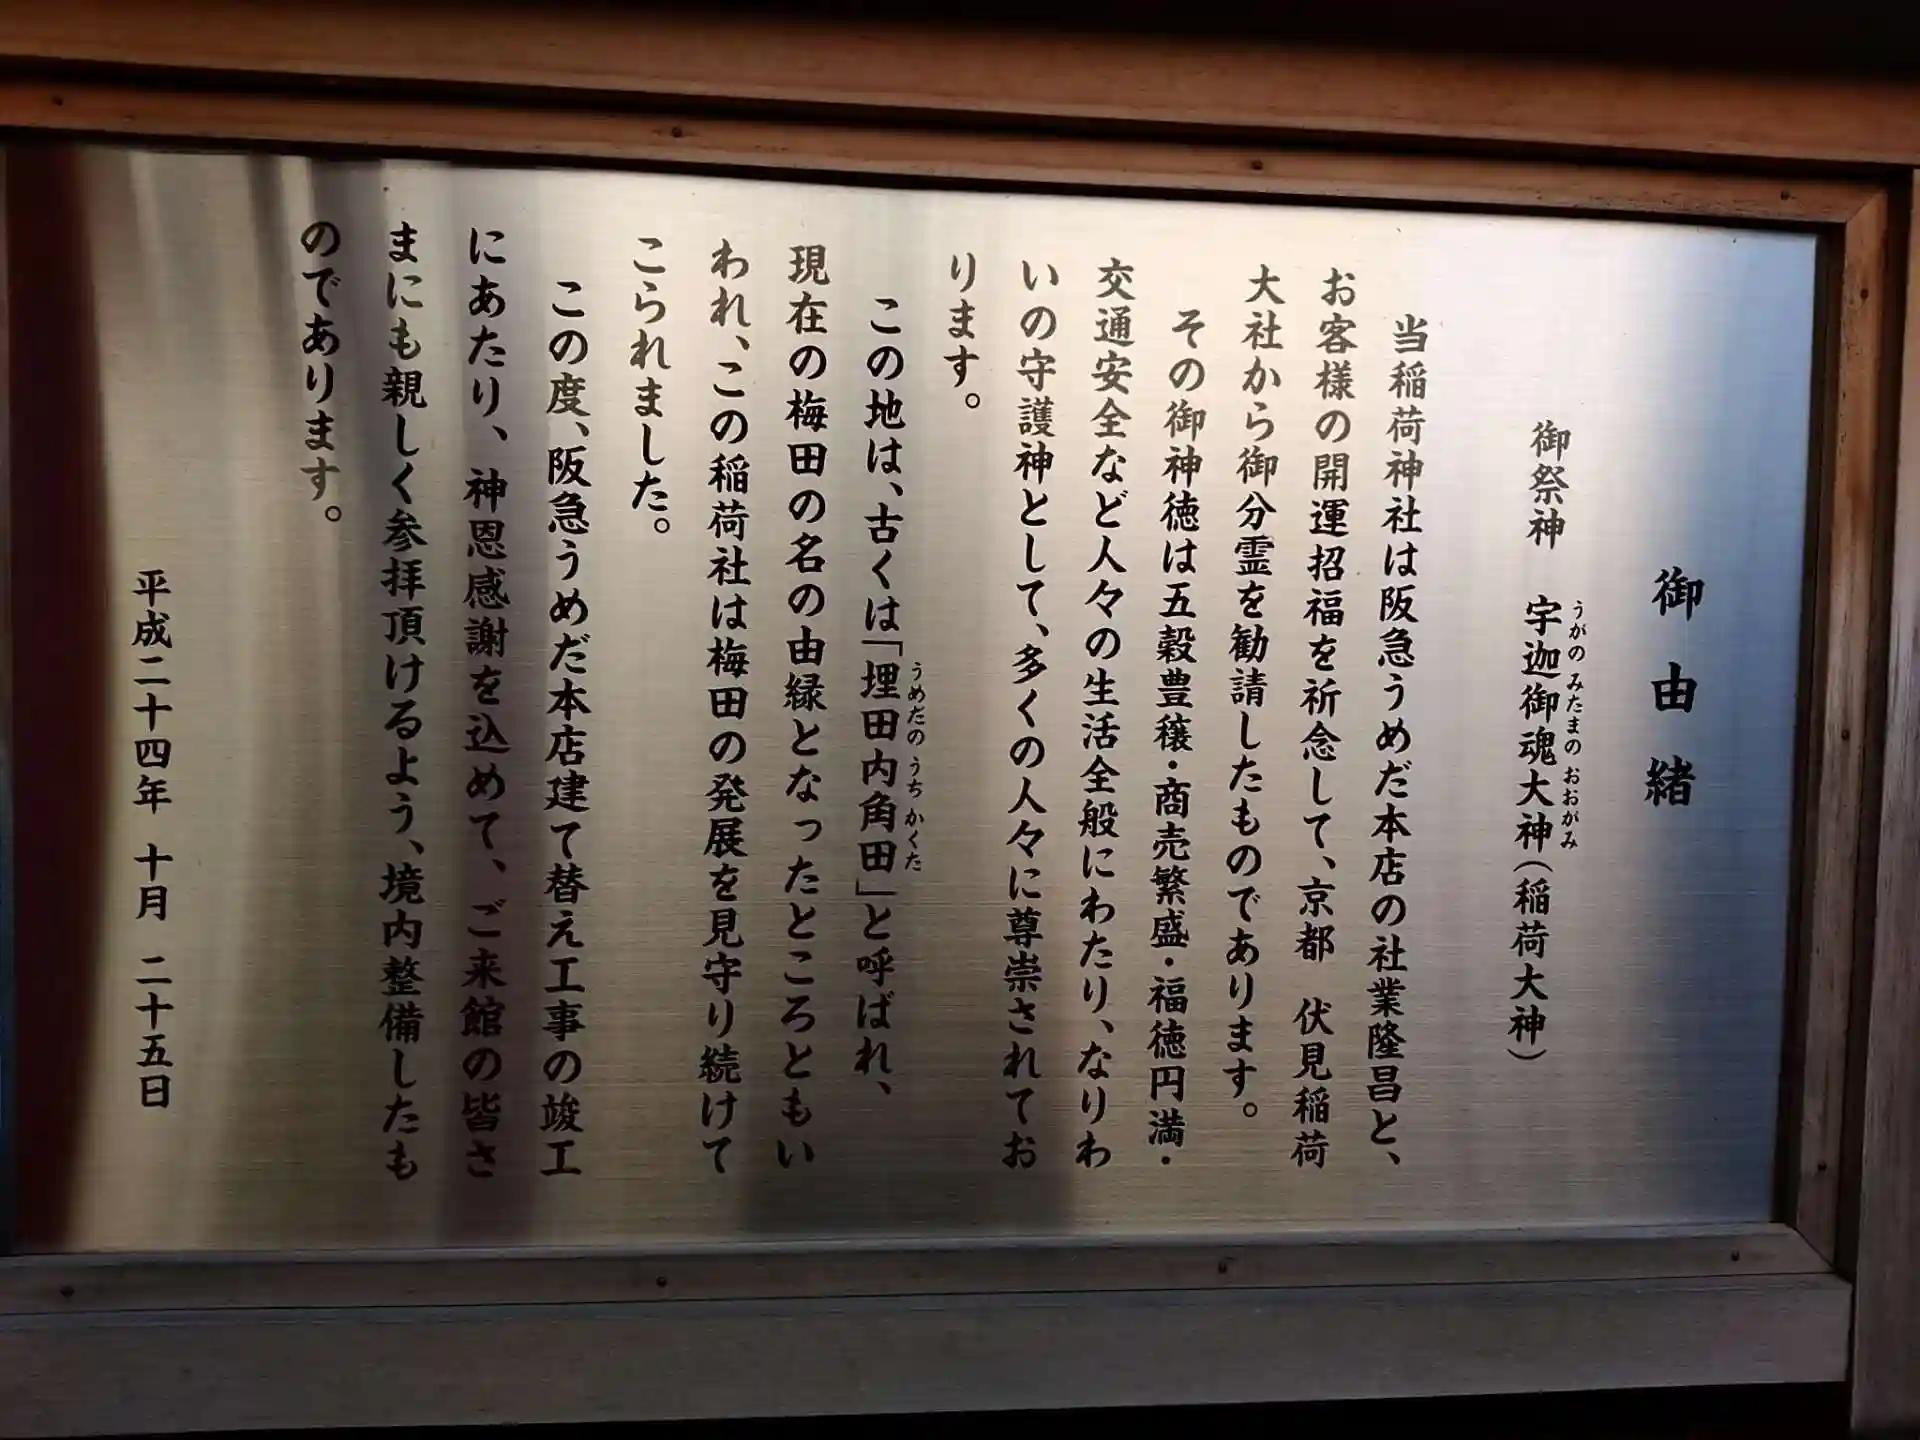 御由緒
御祭神　宇迦御魂大神（稲荷大神）
うがのみたまのおおがみ
当稲荷神社は阪急うめだ本店の社業隆昌と、
お客様の開運招福を祈念して、京都　伏見稲荷
大社から御分霊を勧請したものであります。
その御神徳は五穀豊穣・商売繁盛・福徳円満・
交通安全など人々の生活全般にわたり、なりわ
いの守護神として、多くの人々に尊崇されてお
ります。
この地は、古くは「埋田内角田」と呼ばれ、
うめだのうちかくた
現在の梅田の名の由縁となったところともい
われ、この稲荷社は梅田の発展を見守り続けて
こられました。
この度、阪急うめだ本店建て替え工事の竣工
にあたり、神恩感謝を込めて、ご来館の皆さ
まにも親しく参拝頂けるよう、境内整備したも
のであります。
平成二十四年　十月　二十五日